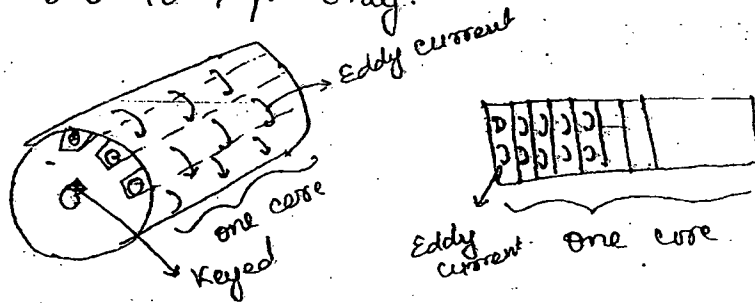 only.
Eddy current
one core
Keyed
Eddy
current
one core